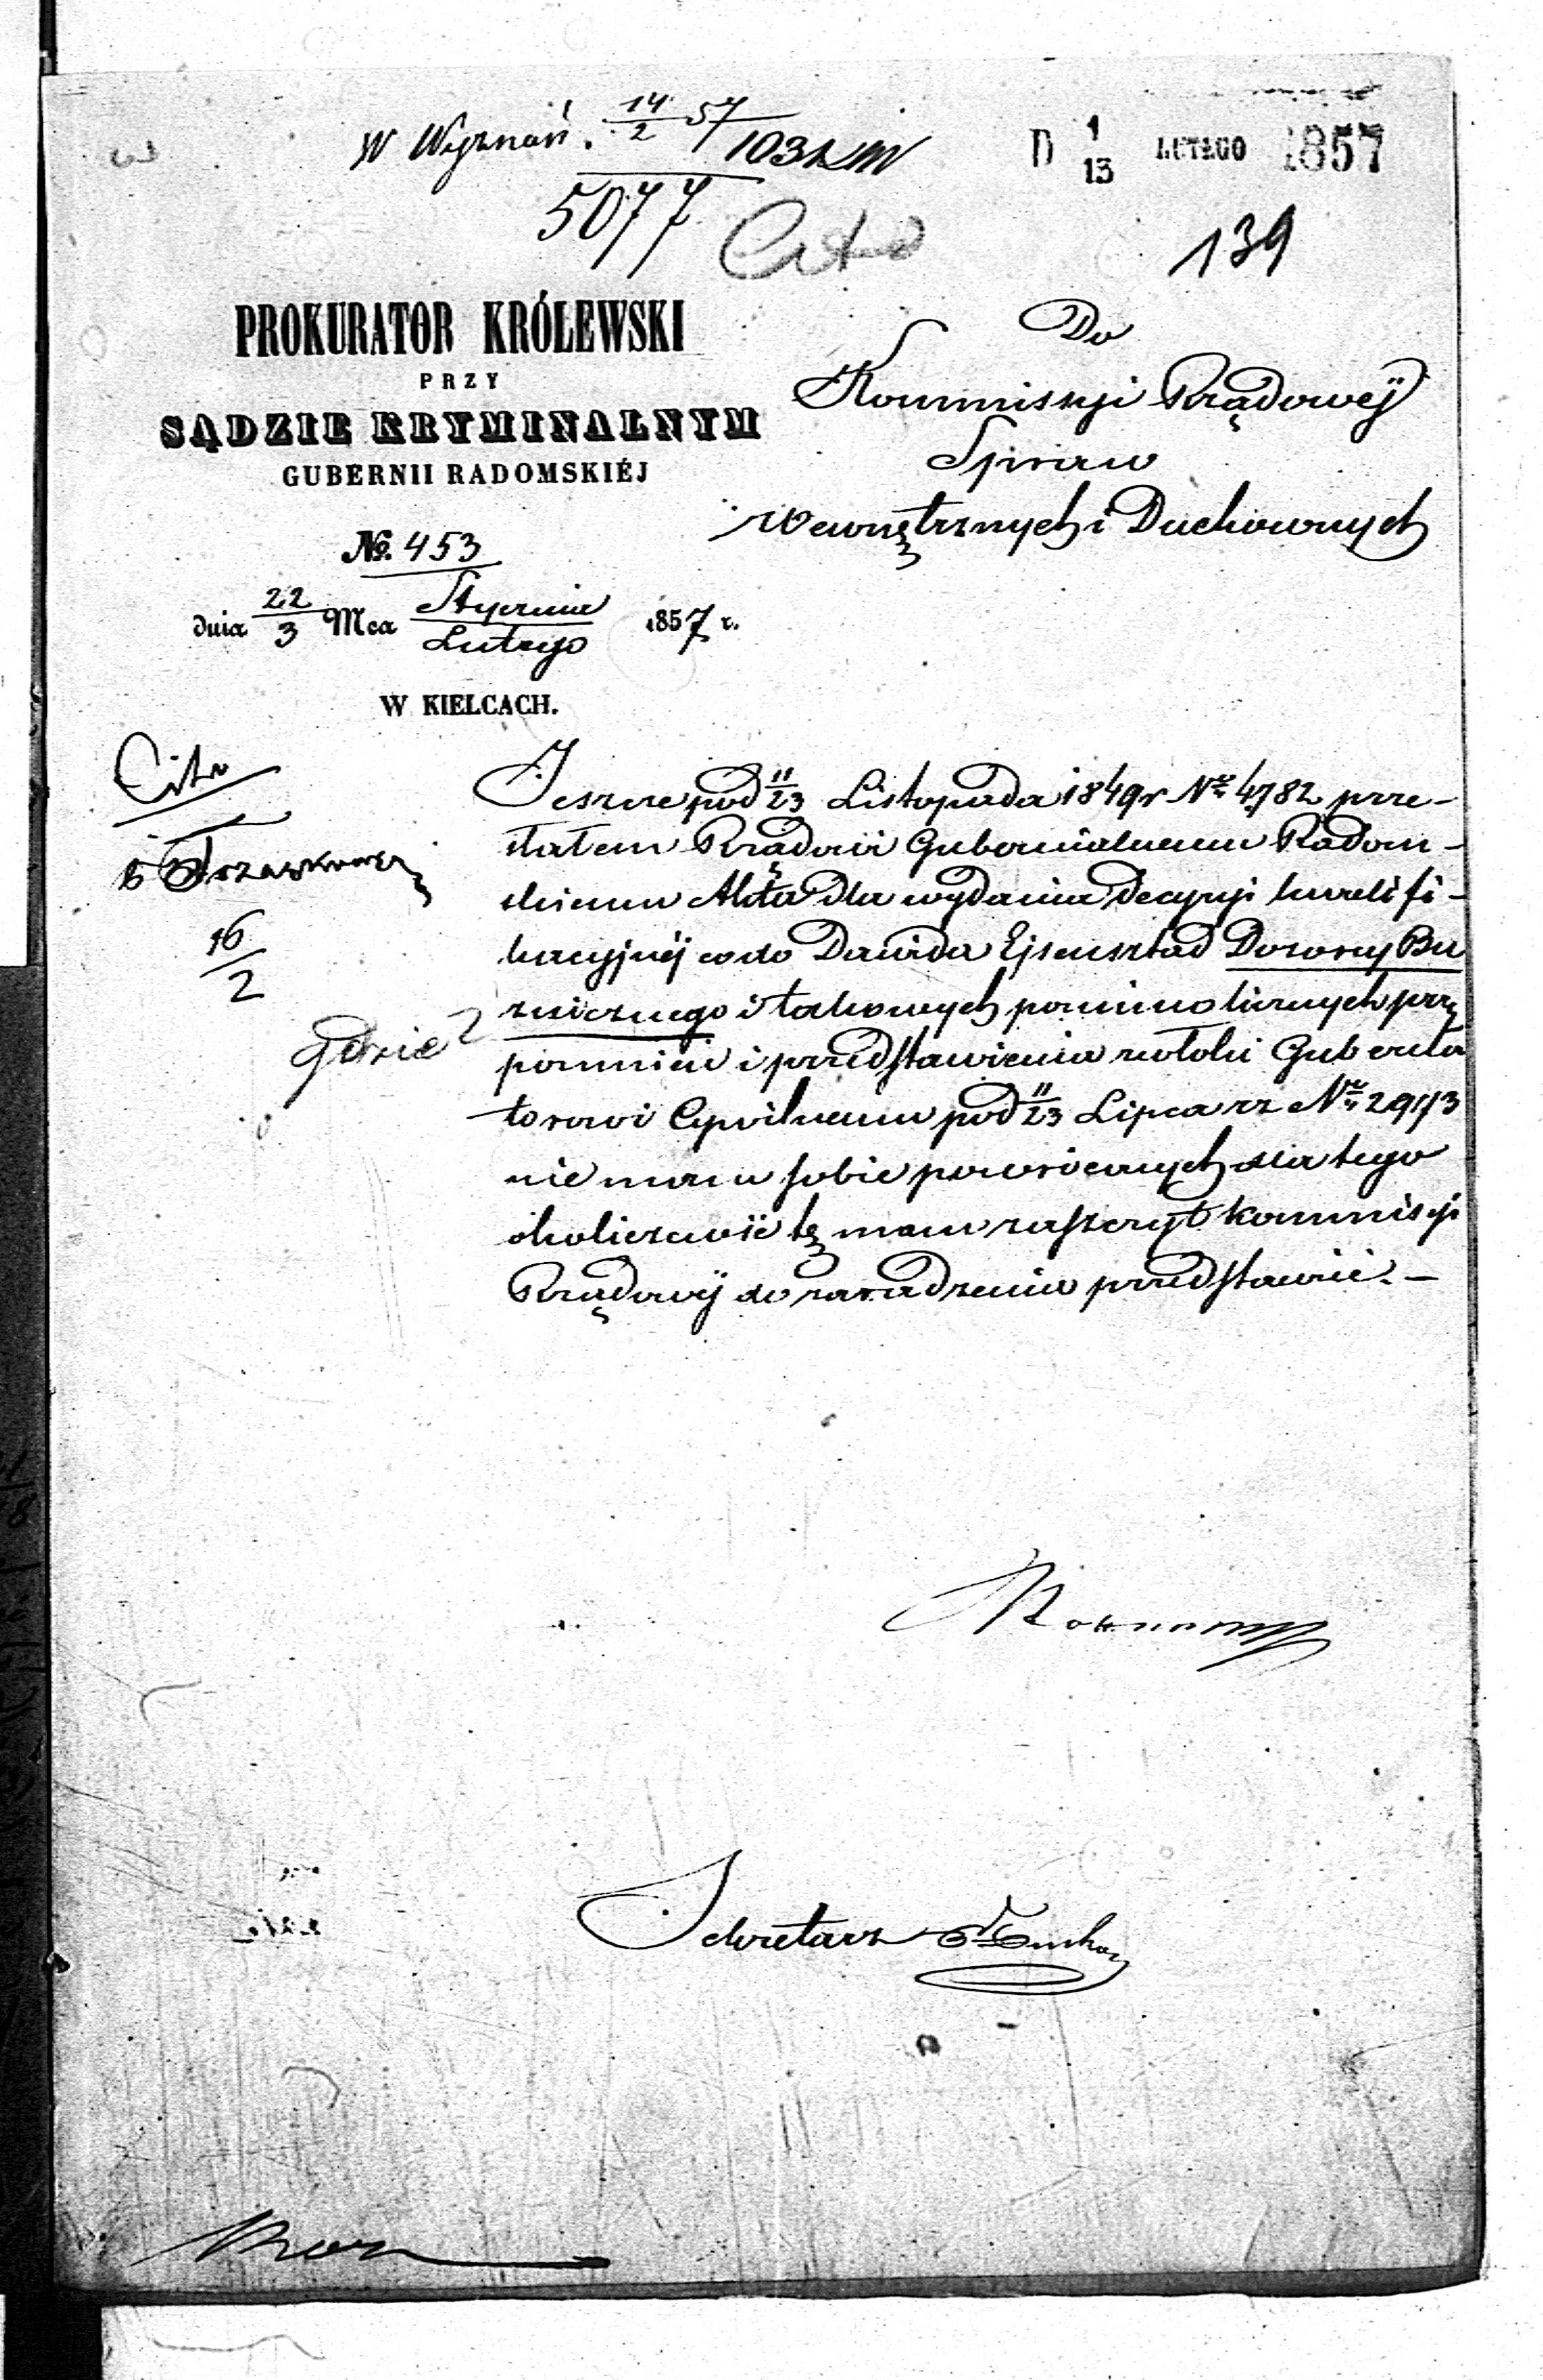 W Wyznań. 14/2 57/103
5077
Cito
D 1/13 LUTEGO 1857
139
PROKURATOR KRÓLEWSKI
PRZY
SĄDZIE KRYMINALNYM
GUBERNII RADOMSKIÉJ
No. 453
dnia 22/3 Mca Stycznia/Lutego 1857 r.
W KIELCACH.
Do
Kommissyi Rządowéj
Spraw
Wewnętrznych i Duchownych
Cito
16/2
gdzie?
Jeszcze pod 11/23 Listopada 1849 r No 4782 prze-
słałem Rządowi Gubernialnemu Radom-
skiemu Akta dla wydania decyzyi kwalifi-
kacyjnéj co do Dawida Ejzensztad Dozorcy Bu
zniczego i takowych pomimo licznych przy
pomnień i przedstawienia zwłoki Guberna
torowi Cywilnemu pod 11/23 Lipca rz No 2973
nie mam sobie powróconych dla tego
okoliczność tę mam zaszczyt Kommissyi
Rządowéj do zaradzenia przedstawić. —
Sekretarz